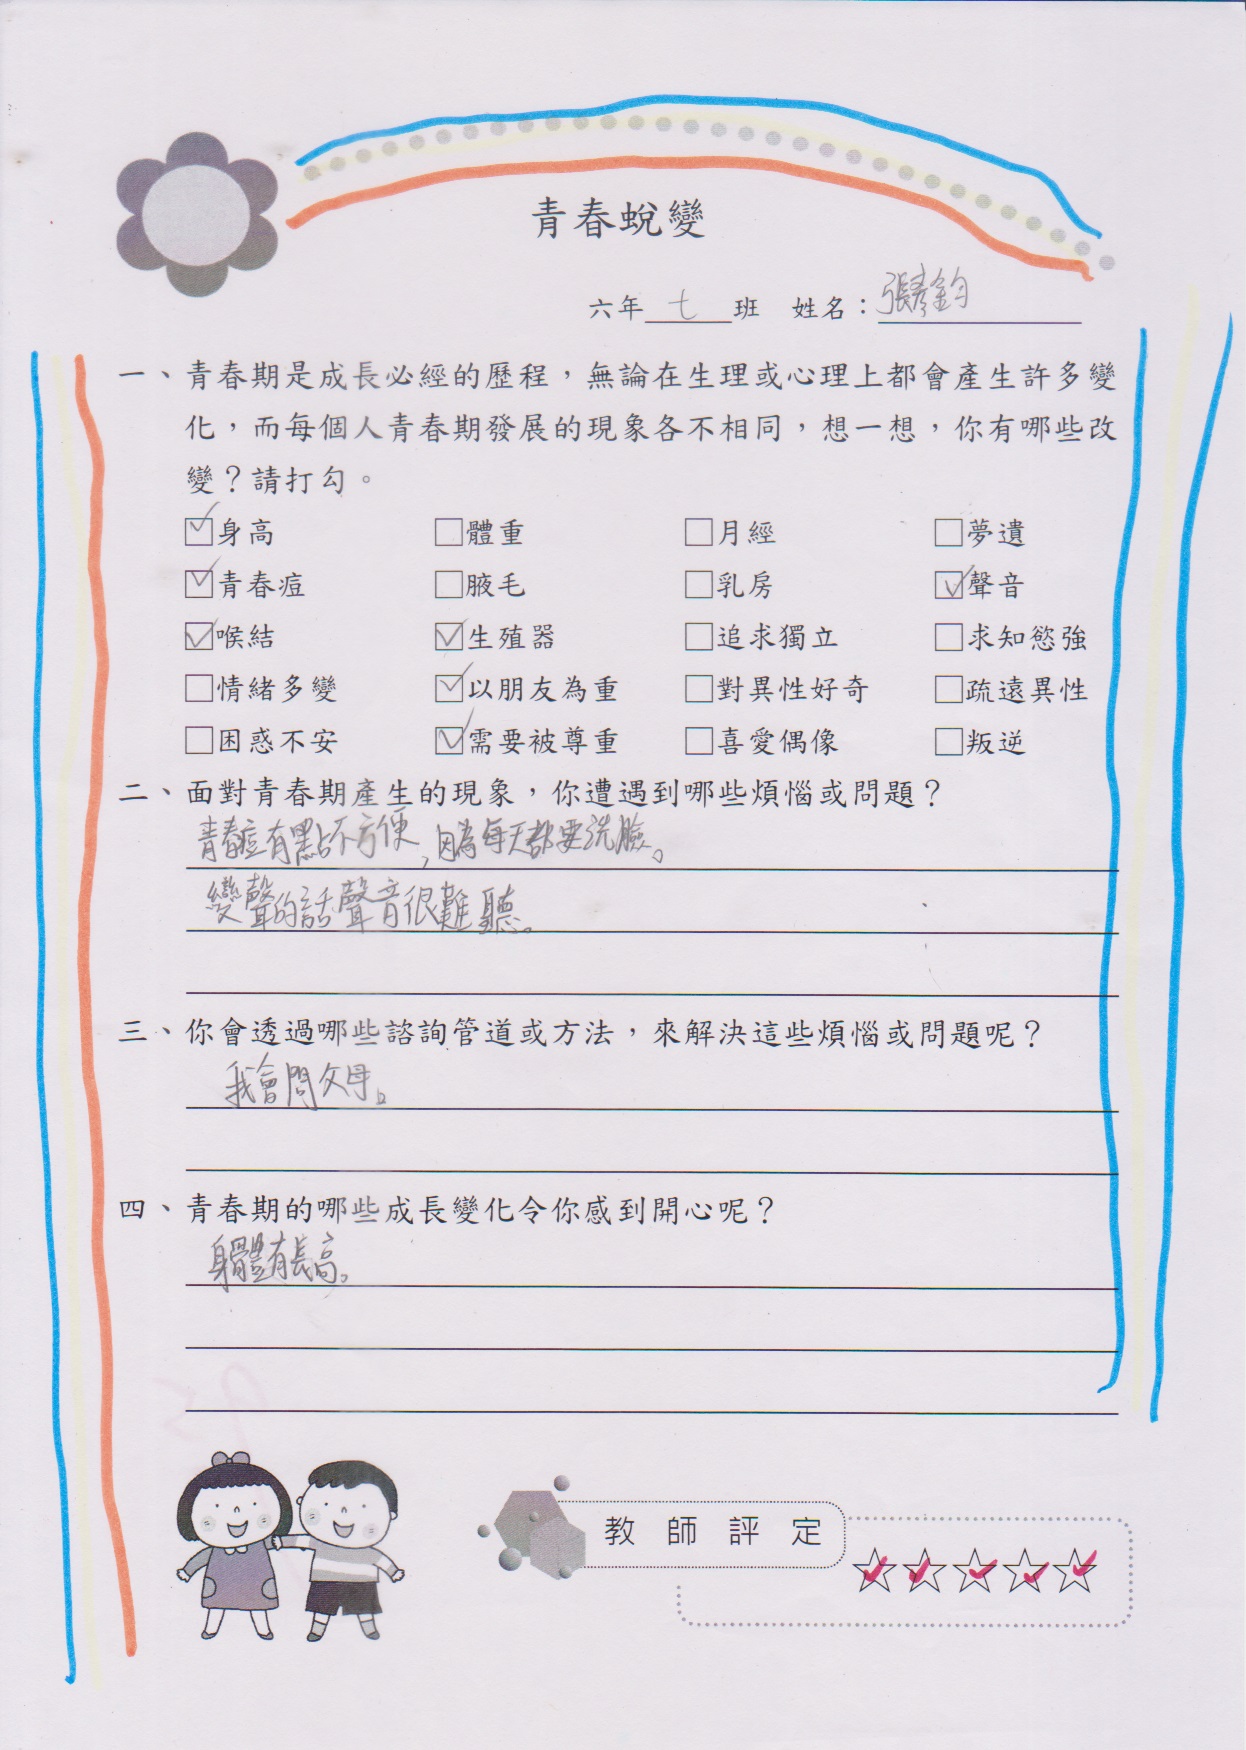 青春蛻變
六年七班 姓名：張彥鈞
一、青春期是成長必經的歷程，無論在生理或心理上都會產生許多變
化，而每個人青春期發展的現象各不相同，想一想，你有哪些改
變？請打勾。
☑身高 □體重 □月經 □夢遺
☑青春痘 □腋毛 □乳房 ☑聲音
☑喉結 ☑生殖器 □追求獨立 □求知慾強
□情緒多變 ☑以朋友為重 □對異性好奇 □疏遠異性
□困惑不安 ☑需要被尊重 □喜愛偶像 □叛逆
二、面對青春期產生的現象，你遭遇到哪些煩惱或問題？
青春痘有點不方便，因為每天都要洗臉。
變聲的話聲音很難聽。
三、你會透過哪些諮詢管道或方法，來解決這些煩惱或問題呢？
我會問父母。
四、青春期的哪些成長變化令你感到開心呢？
身體有長高。
教師評定